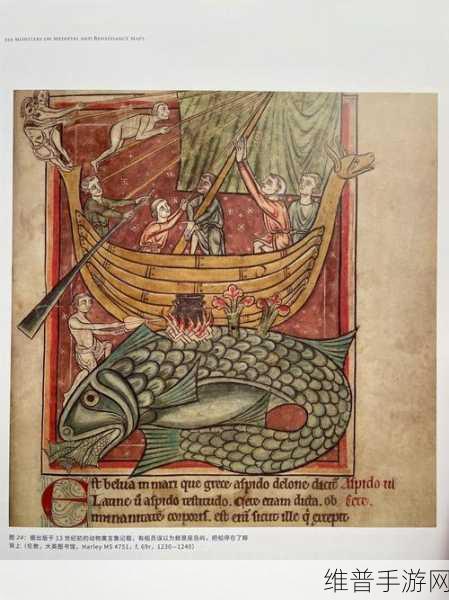 SEA MONSTERS ON MEDIEVAL AND RENAISSANCE MAPS
Est belua in mari que grece aspido delone dicitur Aspido
Latine ū aspido testudo. Cete etiam dicta. ob cete.
immanitatē corporis. est enī sicut ille q̄ excepit
图 24：描绘于 13 世纪初的动物寓言集记载，有船员误以为鲸是岛屿，把船停在了鲸
背上（伦敦，大英图书馆，Harley MS 4751，f. 69r，1230—1240）
维普手游网